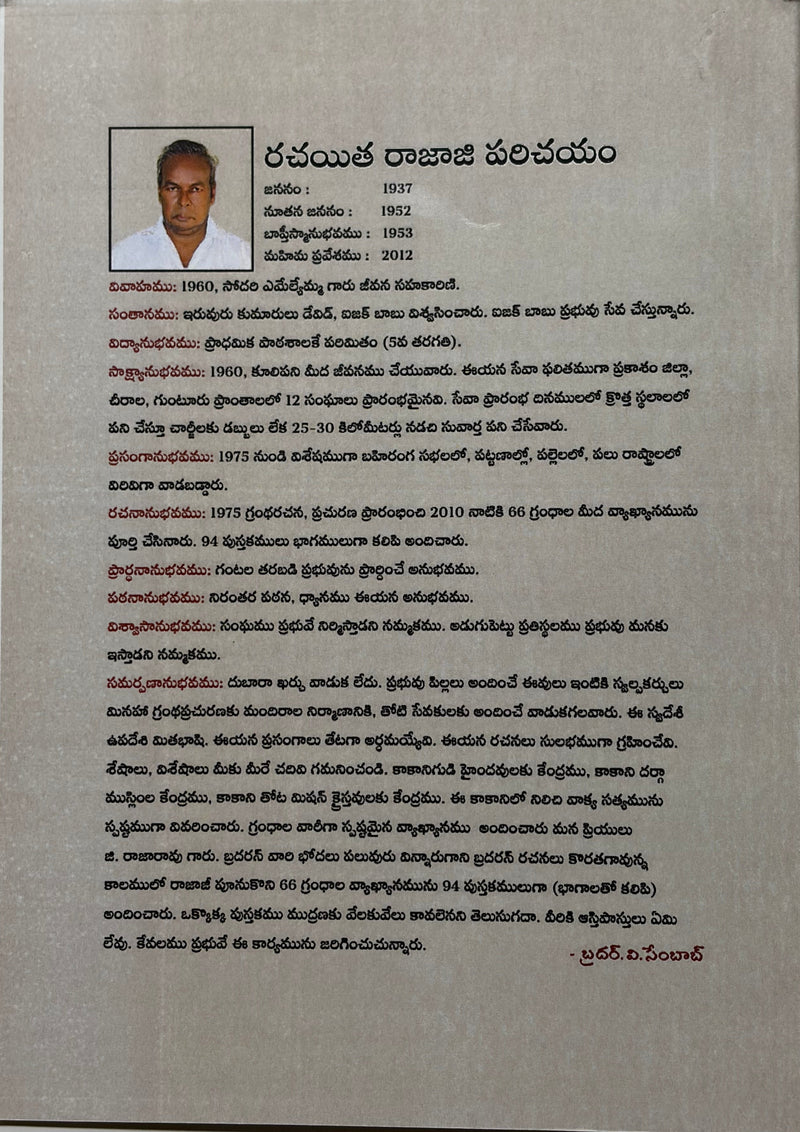 రచయిత రాజాజి పరిచయం
జననం : 1937
నూతన జననం : 1952
బాప్తీస్మానుభవము : 1953
మహిమ ప్రవేశము : 2012
వివాహము: 1960, సోదరి ఎమేల్యేమ్మ గారు జీవన సహకారిణి.
సంతానము: ఇరువురు కుమారులు డేవిడ్, ఐజక్ బాబు విశ్వసించారు. ఐజక్ బాబు ప్రభువు సేవ చేస్తున్నారు.
విద్యానుభవము: ప్రాధమిక పాఠశాలకే పరిమితం (5వ తరగతి).
సాక్ష్యానుభవము: 1960, కూలిపని మీద జీవనము చేయువారు. ఈయన సేవా ఫలితముగా ప్రకాశం జిల్లా,
చీరాల, గుంటూరు ప్రాంతాలలో 12 సంఘాలు ప్రారంభమైనవి. సేవా ప్రారంభ దినములలో క్రొత్త స్థలాలలో
పని చేస్తూ చార్జీలకు డబ్బులు లేక 25-30 కిలోమీటర్లు నడచి సువార్త పని చేసేవారు.
ప్రసంగానుభవము: 1975 నుండి విశేషముగా బహిరంగ సభలలో, పట్టణాల్లో, పల్లెలలో, పలు రాష్ట్రాలలో
విరివిగా వాడబడ్డారు.
రచనానుభవము: 1975 గ్రంథరచన, ప్రచురణ ప్రారంభించి 2010 నాటికి 66 గ్రంథాల మీద వ్యాఖ్యానమును
పూర్తి చేసినారు. 94 పుస్తకములు భాగములుగా కలిపి అందించారు.
ప్రార్ధనానుభవము: గంటల తరబడి ప్రభువును ప్రార్ధించే అనుభవము.
పఠనానుభవము: నిరంతర పఠన, ధ్యానము ఈయన అనుభవము.
విశ్వాసానుభవము: సంఘము ప్రభువే నిర్మిస్తాడని నమ్మకము. అడుగుపెట్టు ప్రతిస్థలము ప్రభువు మనకు
ఇస్తాడని నమ్మకము.
సమర్పణానుభవము: దుబారా ఖర్చు వాడుక లేదు. ప్రభువు పిల్లలు అందించే ఈవులు ఇంటికి స్వల్పకర్చులు
మినహా గ్రంథప్రచురణకు మందిరాల నిర్మాణానికి, తోటి సేవకులకు అందించే వాడుకగలవారు. ఈ స్వదేశీ
ఉపదేశి మితభాషి. ఈయన ప్రసంగాలు తేటగా అర్ధమయ్యేవి. ఈయన రచనలు సులభముగా గ్రహించేవి.
శేషాలు, విశేషాలు మీకు మీరే చదివి గమనించండి. కాకానిగుడి హైందవులకు కేంద్రము, కాకాని దర్గా
ముస్లింల కేంద్రము, కాకాని తోట మిషన్ క్రైస్తవులకు కేంద్రము. ఈ కాకానిలో నిలిచి వాక్య సత్యమును
స్పష్టముగా వివరించారు. గ్రంథాల వారీగా స్పష్టమైన వ్యాఖ్యానము అందించారు మన ప్రియులు
జి. రాజారావు గారు. బ్రదరన్ వారి భోదలు పలువురు విన్నారుగాని బ్రదరన్ రచనలు కొరతగావున్న
కాలములో రాజాజీ పూనుకొని 66 గ్రంథాల వ్యాఖ్యానమును 94 పుస్తకములుగా (భాగాలతో కలిపి)
అందించారు. ఒక్కొక్క పుస్తకము ముద్రణకు వేలకువేలు కావలెనని తెలుసుగదా. వీరికి ఆస్తిపాస్తులు ఏమి
లేవు. కేవలము ప్రభువే ఈ కార్యమును జరిగించుచున్నారు.
- బ్రదర్. వి.సేంబాబ్